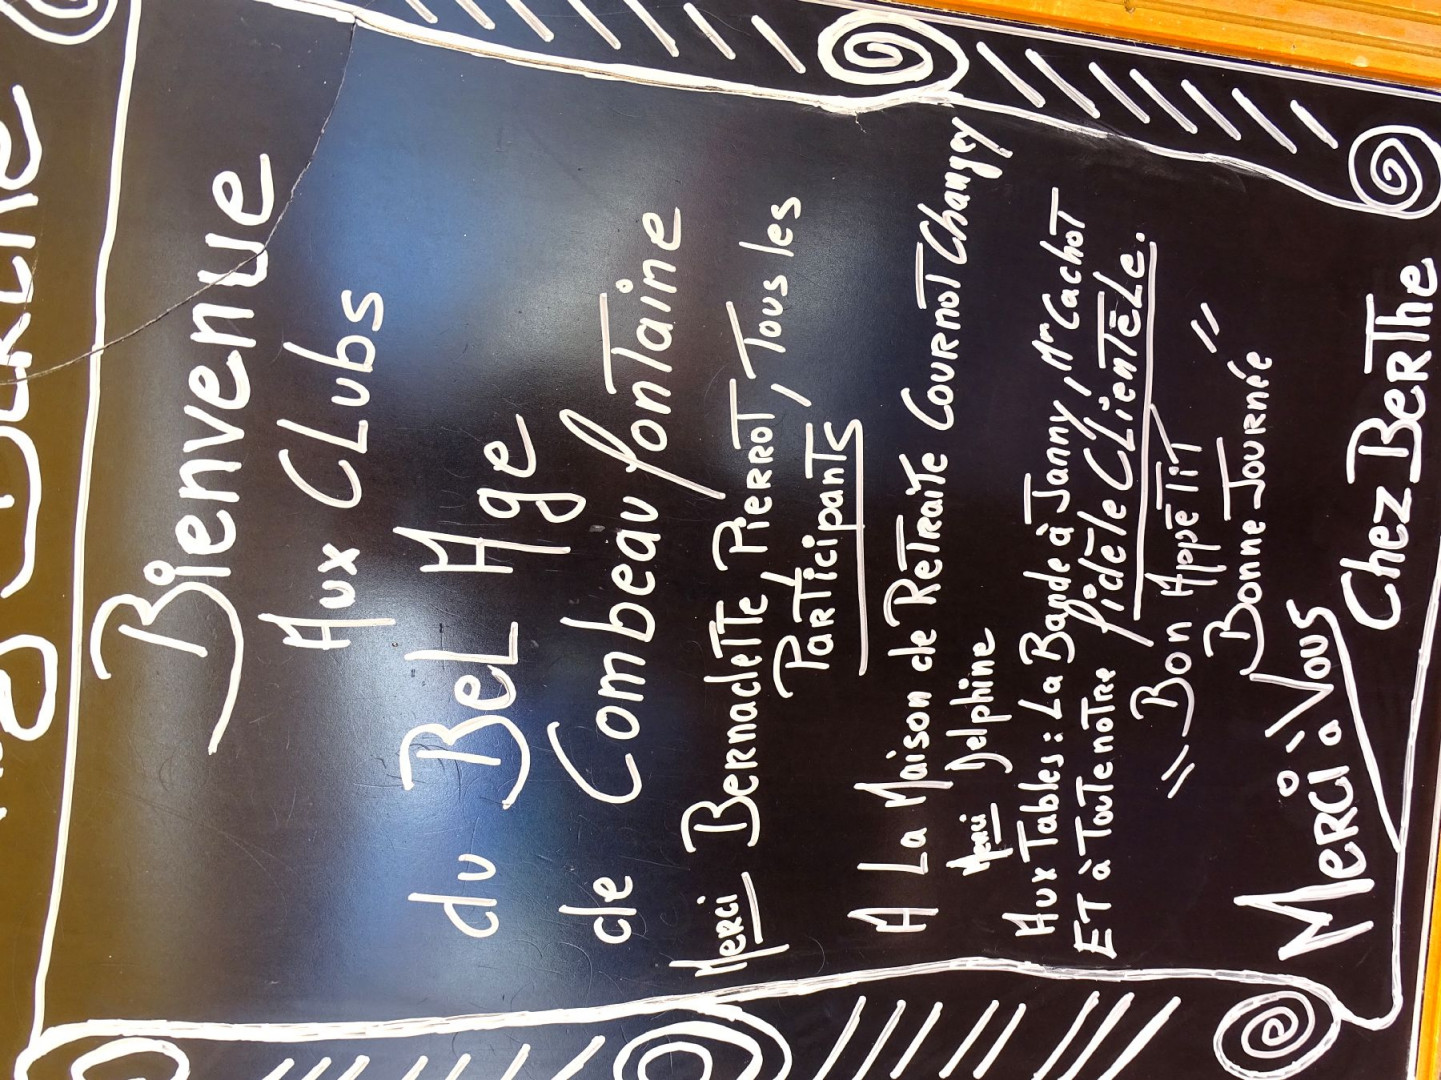 Bienvenue
Aux Clubs
du Bel Age
de Combeaufontaine
Merci Bernadette Pierrot, Tous les
Participants
A La Maison de Retraite Cournot Changey
Merci Delphine
Aux Tables : La Bande à Janny, Mr Cachot
Et à Toute notre fidèle Clientèle.
" Bon Appétit
Bonne Journée "
Merci à Vous
Chez Berthe